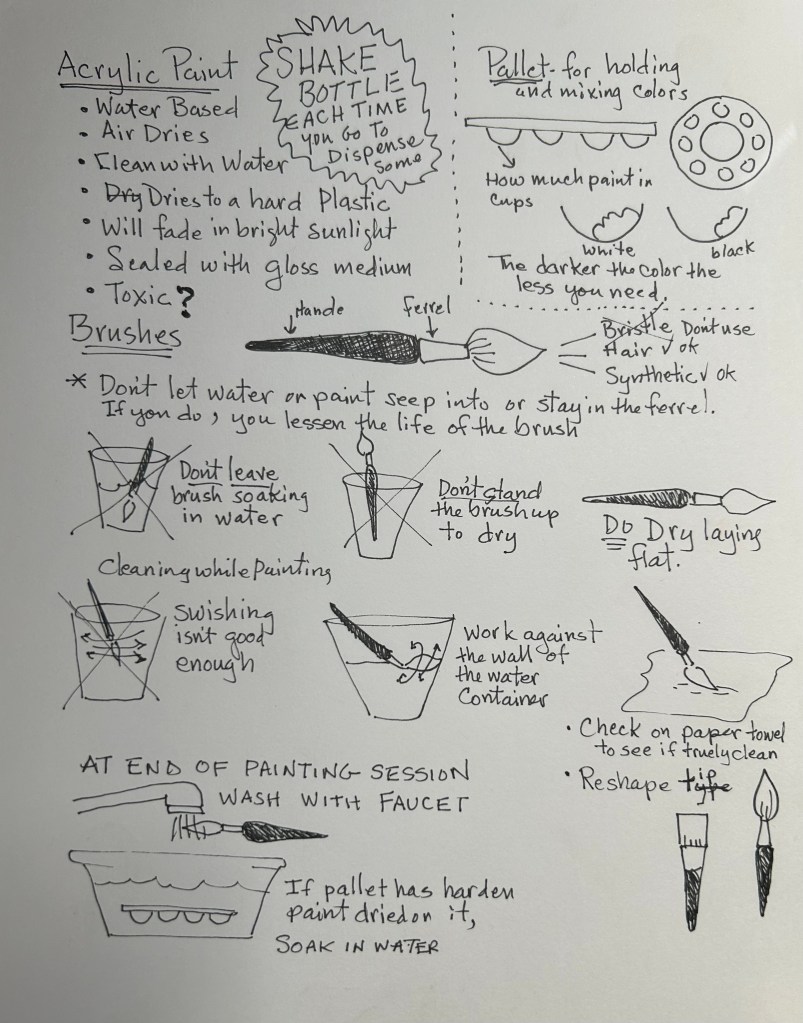 Acrylic Paint
• Water Based
• Air Dries
• Clean with Water
• Dry Dries to a hard Plastic
• Will fade in bright sunlight
• Sealed with gloss medium
• Toxic?
SHAKE
BOTTLE
EACH TIME
you Go To
Dispense
Some
Pallet - for holding
and mixing colors
How much paint in
cups
white
black
The darker the color the
less you need.
Brushes
Hande
ferrel
Bristle Don't use
Hair ✓ ok
Synthetic ✓ ok
* Don't let water or paint seep into or stay in the ferrel.
If you do, you lessen the life of the brush
Don't leave
brush soaking
in water
Don't stand
the brush up
to dry
Do Dry laying
flat.
Cleaning while Painting
Swishing
isn't good
enough
Work against
the wall of
the water
Container
• Check on paper towel
to see if truely clean
• Reshape type tip
AT END OF PAINTING SESSION
WASH WITH FAUCET
If pallet has harden
paint dried on it,
SOAK IN WATER